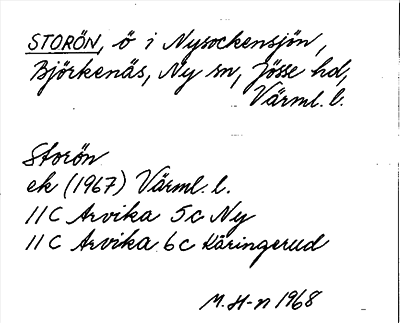 STORÖN, ö i Nysockensjön,
Björkenäs, Ny sn, Jösse hd,
Värml. l.
Storön
ek (1967) Värml. l.
11C Arvika 5c Ny
11C Arvika 6c Käringerud
M. H-n 1968